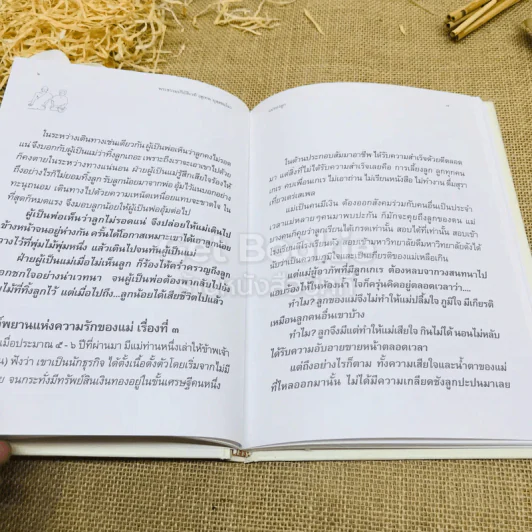 ในระหว่างเดินทางเช่นเดียวกัน ผู้เป็นพ่อเห็นว่าลูกคงไม่รอด
แน่ จึงบอกกับผู้เป็นแม่ว่าทิ้งลูกเถอะ เพราะถึงเราจะเอาเขาไปด้วย
ก็คงตายในระหว่างทางแน่นอน ฝ่ายผู้เป็นแม่รู้สึกเสียใจร้องไห้
ถึงอย่างไรก็ไม่ยอมทิ้งลูก รับลูกน้อยมาจากพ่อ อุ้มไว้แนบอกอย่าง
ทะนุถนอม เดินทางไปด้วยความเหนื่อยแทบจะขาดใจ ใน
ที่สุดก็หมดแรง จึงมอบลูกน้อยให้ผู้เป็นพ่ออุ้มต่อไป
ผู้เป็นพ่อเห็นว่าลูกไม่รอดแน่ จึงปล่อยให้แม่เดินไป
ข้างหน้าจนอยู่ห่างกัน ครั้นได้โอกาสเหมาะเขาได้เอาลูกน้อย
วางไว้ที่พุ่มไม้พุ่มหนึ่ง แล้วเดินไปจนทันผู้เป็นแม่
ฝ่ายผู้เป็นแม่เมื่อไม่เห็นลูก ก็ร้องไห้คร่ำครวญถึงลูก
อกชกใจอย่างน่าเวทนา จนผู้เป็นพ่อต้องพากลับไป
ไม้ที่ทิ้งลูกไว้ แต่เมื่อไปถึง...ลูกน้อยได้เสียชีวิตไปแล้ว
พยานแห่งความรักของแม่ เรื่องที่ ๓
เมื่อประมาณ ๕ - ๖ ปีที่ผ่านมา มีแม่ท่านหนึ่งเล่าให้ข้าพเจ้า
ฟังว่า เขาเป็นนักธุรกิจ ได้ตั้งเนื้อตั้งตัวโดยเริ่มจากไม่มี
เลย จนกระทั่งมีทรัพย์สินเงินทองอยู่ในขั้นเศรษฐีคนหนึ่ง
ในด้านประกอบสัมมาอาชีพ ได้รับความสำเร็จด้วยดีตลอด
มา แต่สิ่งที่ไม่ได้รับความสำเร็จเลยคือ การเลี้ยงลูก ลูกทุกคน
เกเร คบเพื่อนเกเร ไม่เอาถ่าน ไม่เรียนหนังสือ ไม่ทำงาน ดื่มสุรา
เที่ยวเสเพล
แม่เป็นคนมีเงิน ต้องออกสังคมร่วมกับคนอื่นเป็นประจำ
เวลาแม่หลาย ๆ คนมาพบปะกัน ก็มักจะคุยถึงลูกของตน แม่
บางคนก็คุยว่าลูกเรียนได้เกรดเท่านั้น สอบได้ที่เท่านี้ สอบเข้า
แต่แม่ผู้อาภัพที่มีลูกเกเร ต้องหลบจากวงสนทนาไป
ทำไม? ลูกของแม่จึงไม่ทำให้แม่ปลื้มใจ ภูมิใจ มีเกียรติ
เหมือนลูกคนอื่นเขาบ้าง
ทำไม? ลูกจึงมีแต่ทำให้แม่เสียใจ กินไม่ได้ นอนไม่หลับ
ได้รับความอับอายขายหน้าตลอดเวลา
แต่ถึงอย่างไรก็ตาม ทั้งความเสียใจและน้ำตาของแม่
ที่ไหลออกมานั้น ไม่ได้มีความเกลียดชังลูกปะปนมาเลย